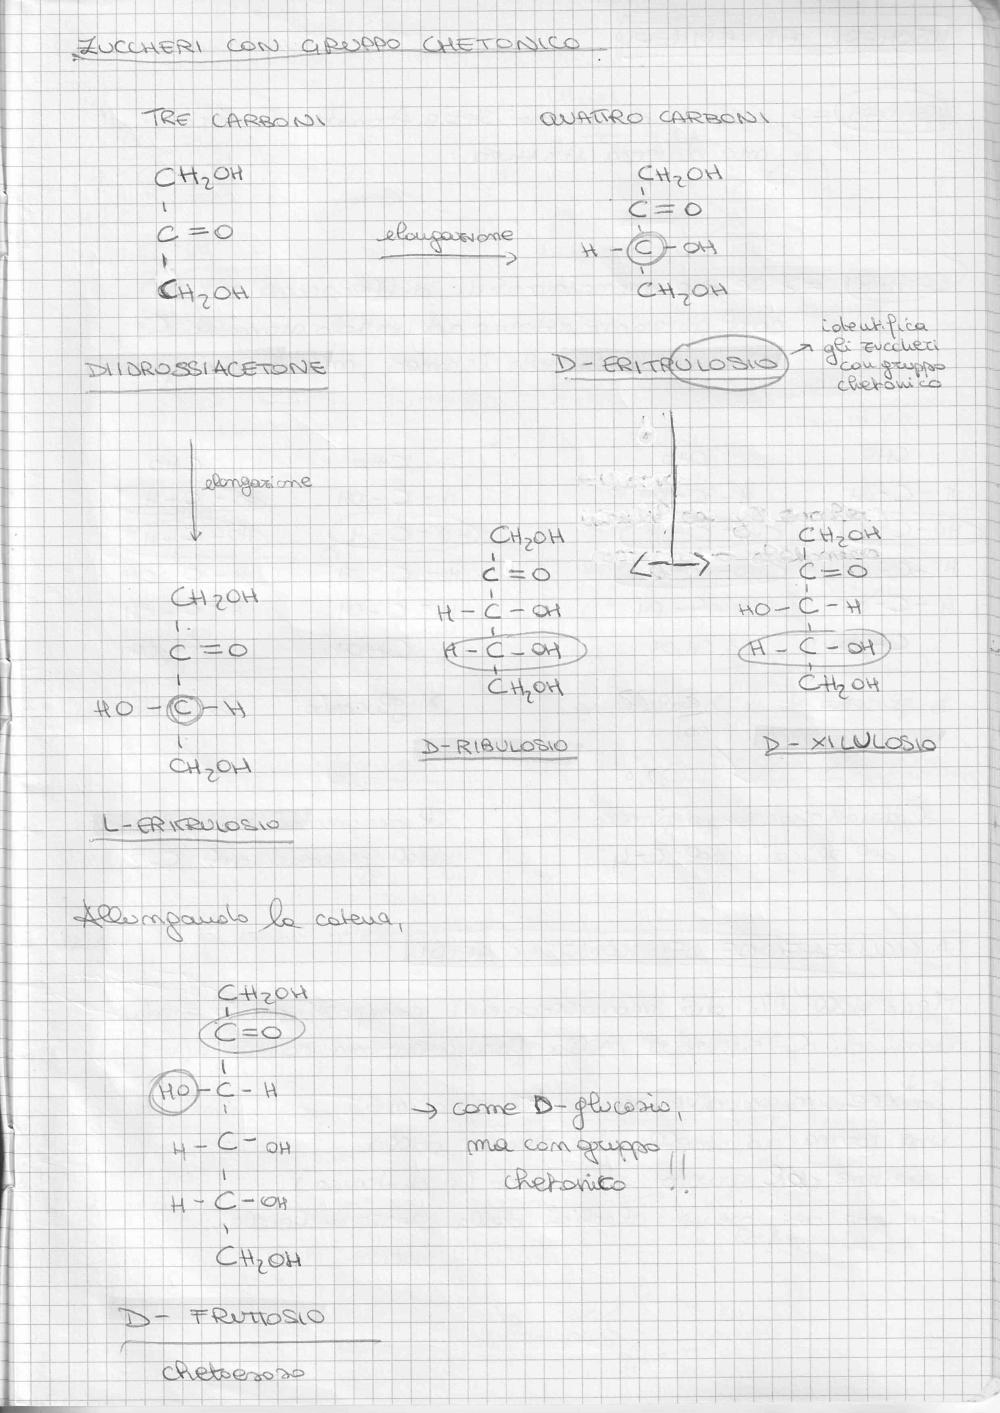 ZUCCHERI CON GRUPPO CHETONICO
TRE CARBONI
QUATTRO CARBONI
CH₂OH
C=O
CH₂OH
elongazione
CH₂OH
C=O
H-C-OH
CH₂OH
DIIDROSSIACETONE
D-ERITRULOSIO
identifica
gli zuccheri
con gruppo
chetonico
elongazione
CH₂OH
C=O
HO-C-H
CH₂OH
L-ERITRULOSIO
CH₂OH
C=O
H-C-OH
H-C-OH
CH₂OH
D-RIBULOSIO
CH₂OH
C=O
HO-C-H
H-C-OH
CH₂OH
D-XILULOSIO
Allungando la catena,
CH₂OH
C=O
HO-C-H
H-C-OH
H-C-OH
CH₂OH
→ come D-glucosio,
ma con gruppo
chetonico !!
D-FRUTTOSIO
chetoesoso